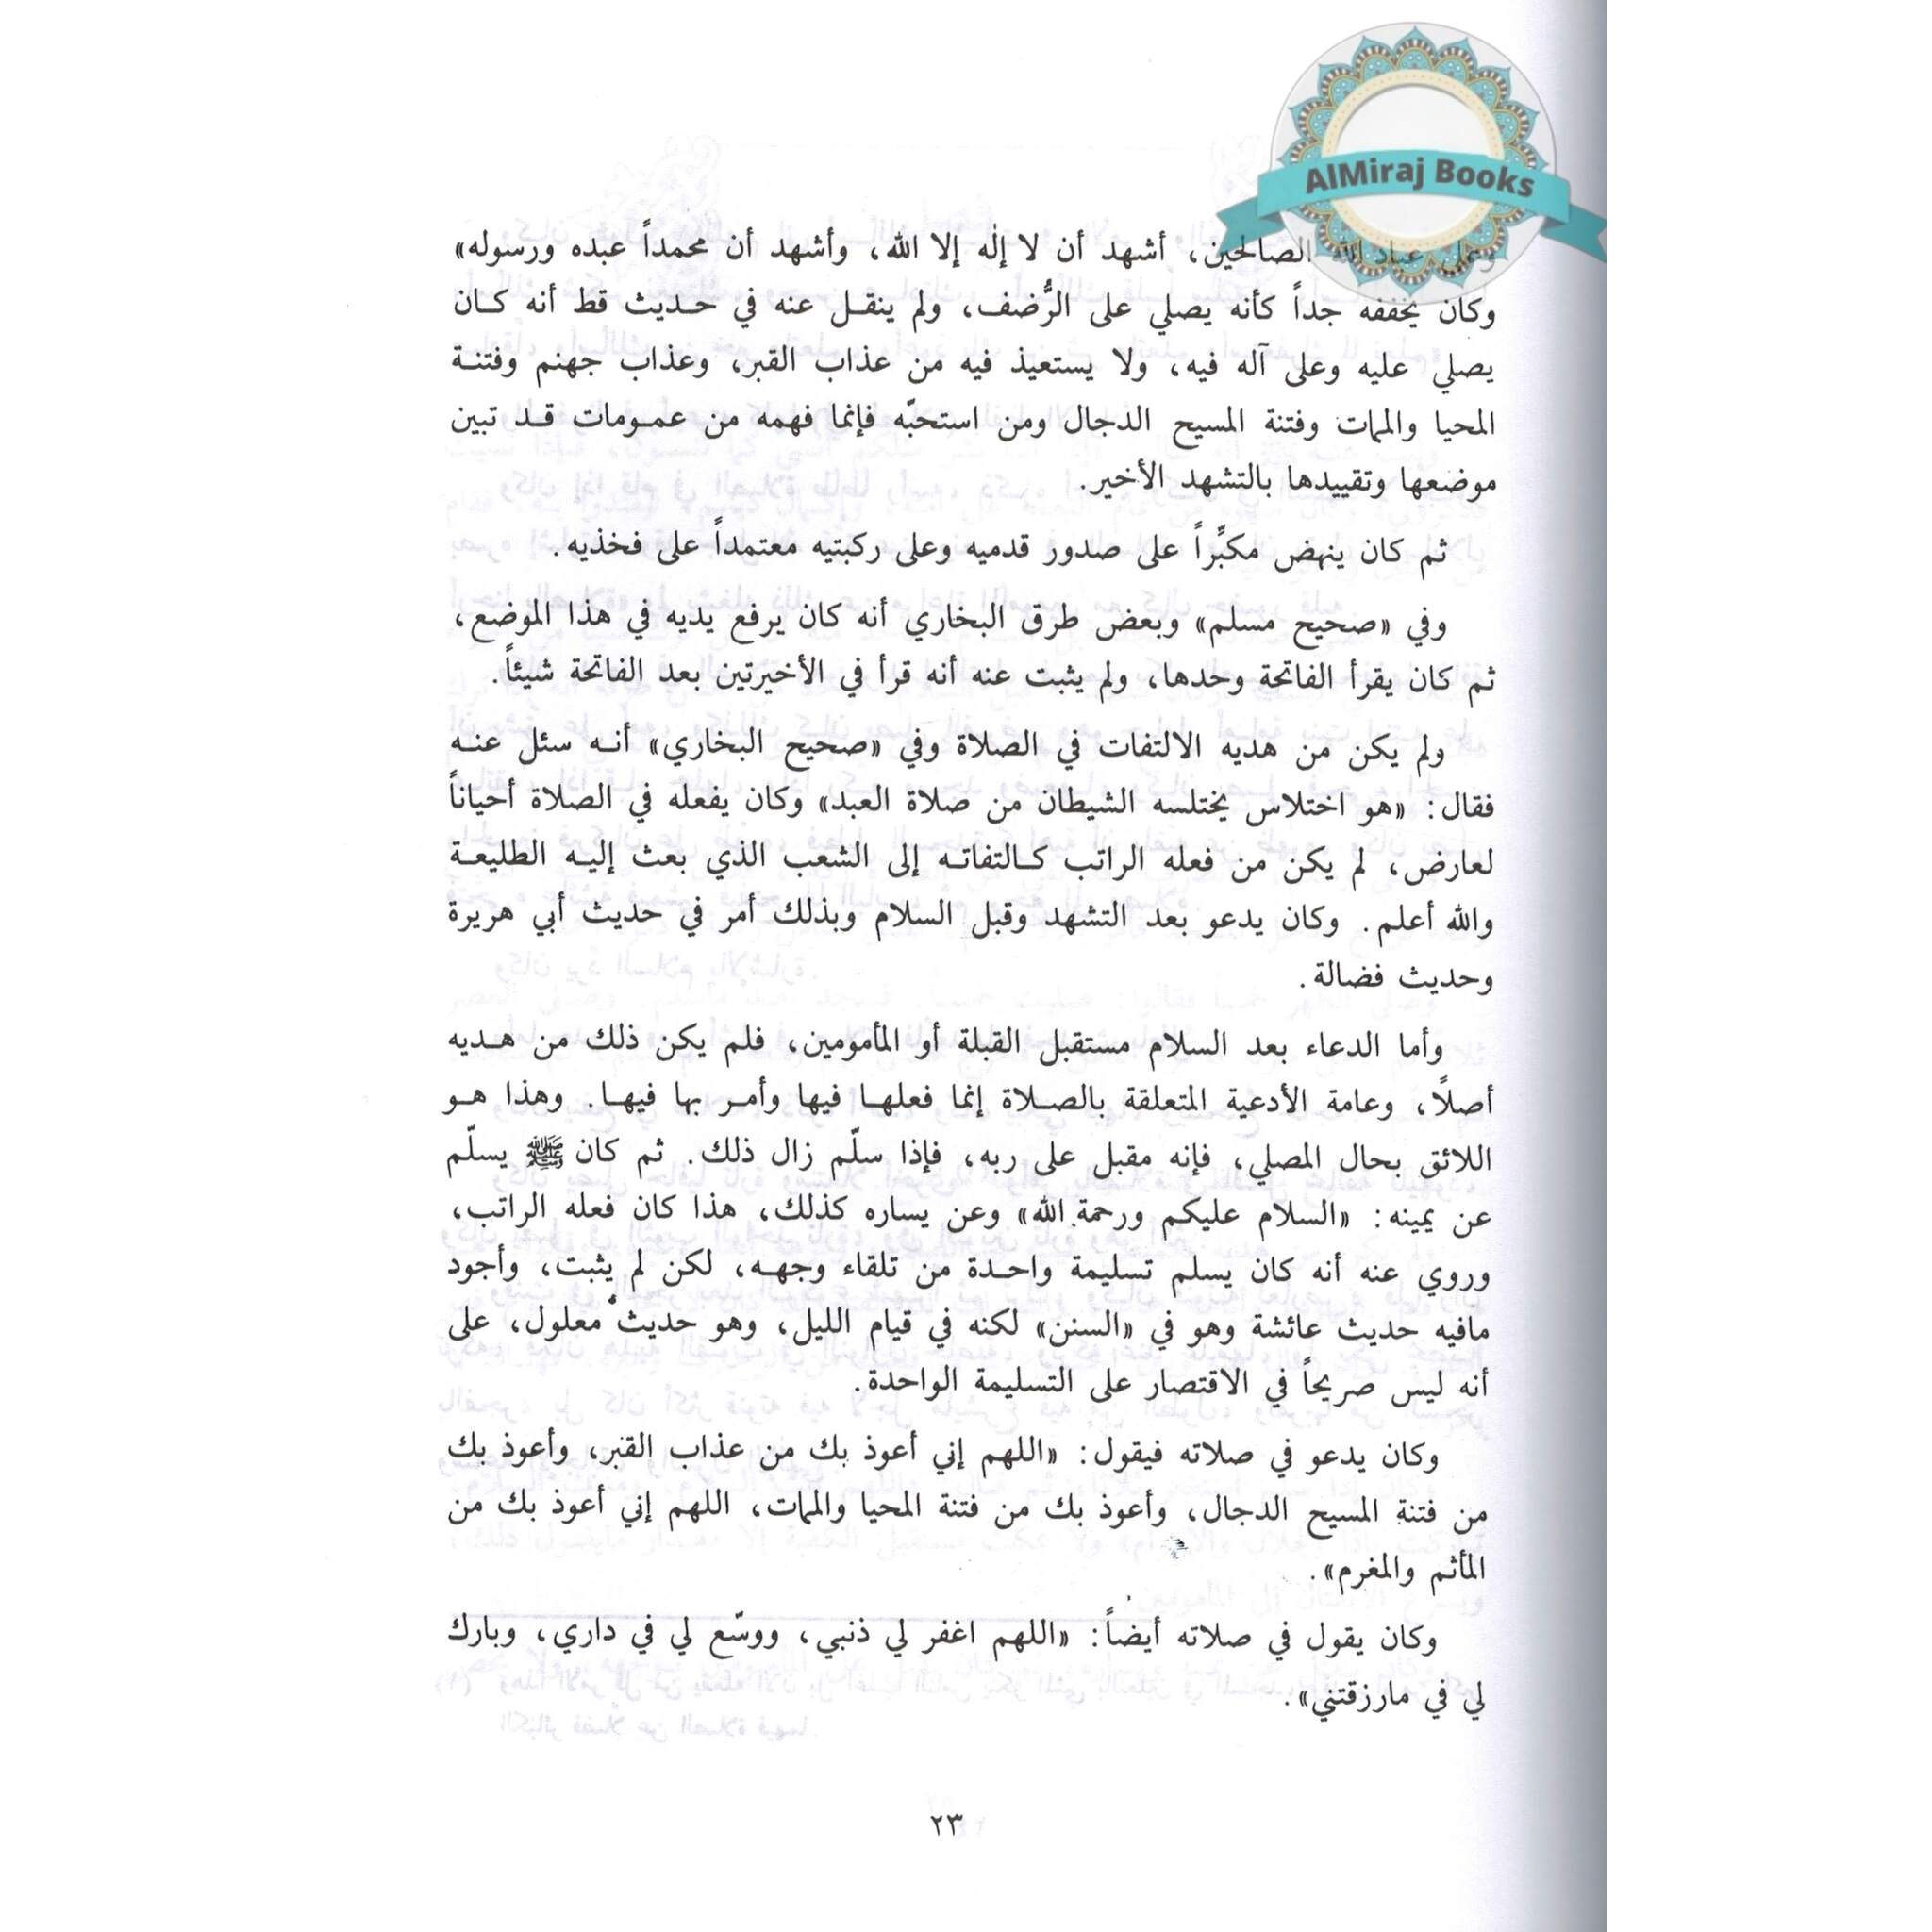 AlMiraj Books
الصالحين، أشهد أن لا إلٰه إلا الله، وأشهد أن محمداً عبده ورسوله»
وكان يخففه جداً كأنه يصلي على الرُّضف، ولم ينقل عنه في حديث قط أنه كان
يصلي عليه وعلى آله فيه، ولا يستعيذ فيه من عذاب القبر، وعذاب جهنم وفتنة
المحيا والممات وفتنة المسيح الدجال ومن استحبّه فإنما فهمه من عمومات قد تبين
موضعها وتقييدها بالتشهد الأخير.
ثم كان ينهض مكبِّراً على صدور قدميه وعلى ركبتيه معتمداً على فخذيه.
وفي «صحيح مسلم» وبعض طرق البخاري أنه كان يرفع يديه في هذا الموضع،
ثم كان يقرأ الفاتحة وحدها، ولم يثبت عنه أنه قرأ في الأخيرتين بعد الفاتحة شيئاً.
ولم يكن من هديه الالتفات في الصلاة وفي «صحيح البخاري» أنه سئل عنه
فقال: «هو اختلاس يختلسه الشيطان من صلاة العبد» وكان يفعله في الصلاة أحياناً
لعارض، لم يكن من فعله الراتب كالتفاته إلى الشعب الذي بعث إليه الطليعة
والله أعلم. وكان يدعو بعد التشهد وقبل السلام وبذلك أمر في حديث أبي هريرة
وحديث فضالة.
وأما الدعاء بعد السلام مستقبل القبلة أو المأمومين، فلم يكن ذلك من هديه
أصلًا، وعامة الأدعية المتعلقة بالصلاة إنما فعلها فيها وأمر بها فيها. وهذا هو
اللائق بحال المصلي، فإنه مقبل على ربه، فإذا سلّم زال ذلك. ثم كان ﷺ يسلّم
عن يمينه: «السلام عليكم ورحمة الله» وعن يساره كذلك، هذا كان فعله الراتب،
وروي عنه أنه كان يسلم تسليمة واحدة من تلقاء وجهه، لكن لم يثبت، وأجود
مافيه حديث عائشة وهو في «السنن» لكنه في قيام الليل، وهو حديث معلول، على
أنه ليس صريحاً في الاقتصار على التسليمة الواحدة.
وكان يدعو في صلاته فيقول: «اللهم إني أعوذ بك من عذاب القبر، وأعوذ بك
من فتنة المسيح الدجال، وأعوذ بك من فتنة المحيا والممات، اللهم إني أعوذ بك من
المأثم والمغرم».
وكان يقول في صلاته أيضاً: «اللهم اغفر لي ذنبي، ووسّع لي في داري، وبارك
لي في مارزقتني».
٢٣